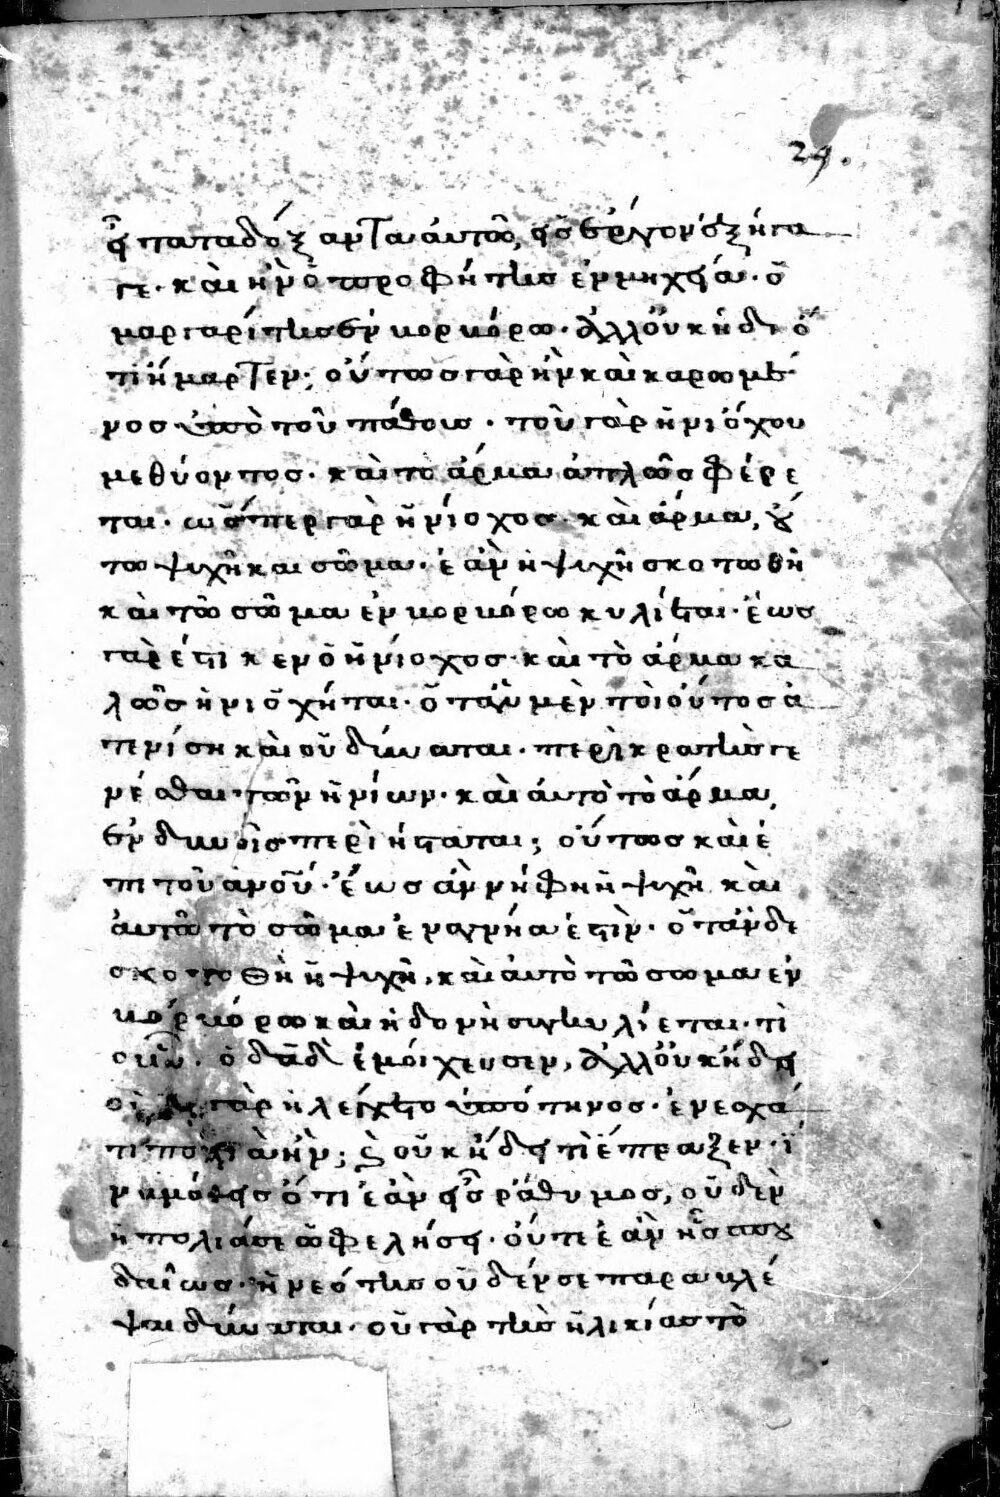 29.
καὶ τὰ παδόξαντα αὐτῶ, εἰς ἔργον ἐξήγα
γε. καὶ ἦν ὁ προφήτης ἐν μηχεία. ὁ
μαργαρίτης ἐν βορβόρω. ἀλλ' οὐκ ἤδει ὅ
τι ἥμαρτεν; οὕτως γὰρ ἦν καὶ καρωμέ
νος ὑπὸ τοῦ πάθους. τοῦ γὰρ ἡνιόχου
μεθύοντος. καὶ τὸ ἅρμα ἁπλῶς φέρε
ται. ὥσπερ γὰρ ἡνίοχος καὶ ἅρμα, οὕ
τω ψυχὴ και σῶμα. ἐὰν ἡ ψυχὴ σκοτωθῆ
καὶ τῶ σῶμα ἐν βορβόρω κυλίεται. ἕως
γὰρ ἔστικεν ὁ ἡνίοχος καὶ τὸ ἅρμα κα
λῶς ἡνιοχῆται. ὅταν μὲν τοι οὗτος ἀ
τενίση καὶ οὐ δύναται. περικρατὴς γε
νέσθαι τῶν ἡνίων. καὶ αὐτὸ τὸ ἅρμα,
ἐν δεινοῖς περιήσταται; οὕτως καὶ ἐ
πι τοῦ ανου. ἕως ἂν νήφη ἡ ψυχὴ καὶ
αὐτῶ τὸ σῶμα ἐν ἁγνήα ἐστὶν. ὅταν δε
σκοτωθῆ ἡ ψυχὴ, καὶ αὐτὸ τῶ σωμα εν
βορβόρω καὶ ἡδονὴς κυλίεται. τί
οὖν. ὁ δαδ ἐμοίχευσεν, ἀλλ' οὐκ ἤδει
γὰρ ἠλέγχετο ὑπό τηνος. ἐν ἐσχά
τι πολιὰ ἦν; καὶ οὐκ ἤδει τὶ ἔπραξεν. ἵ
να μάθεις ὅτι ἐὰν εἶς ράθυμος, οὐδὲν
ἡ πολιά σε ὠφελήσει. οὔτε ἐὰν ἦς σπου
δαῖως. ἡ νεότης οὐδέν σε παραβλέ
ψαι δύναται. οὐ γὰρ τῆς ἡλικίας τὸ